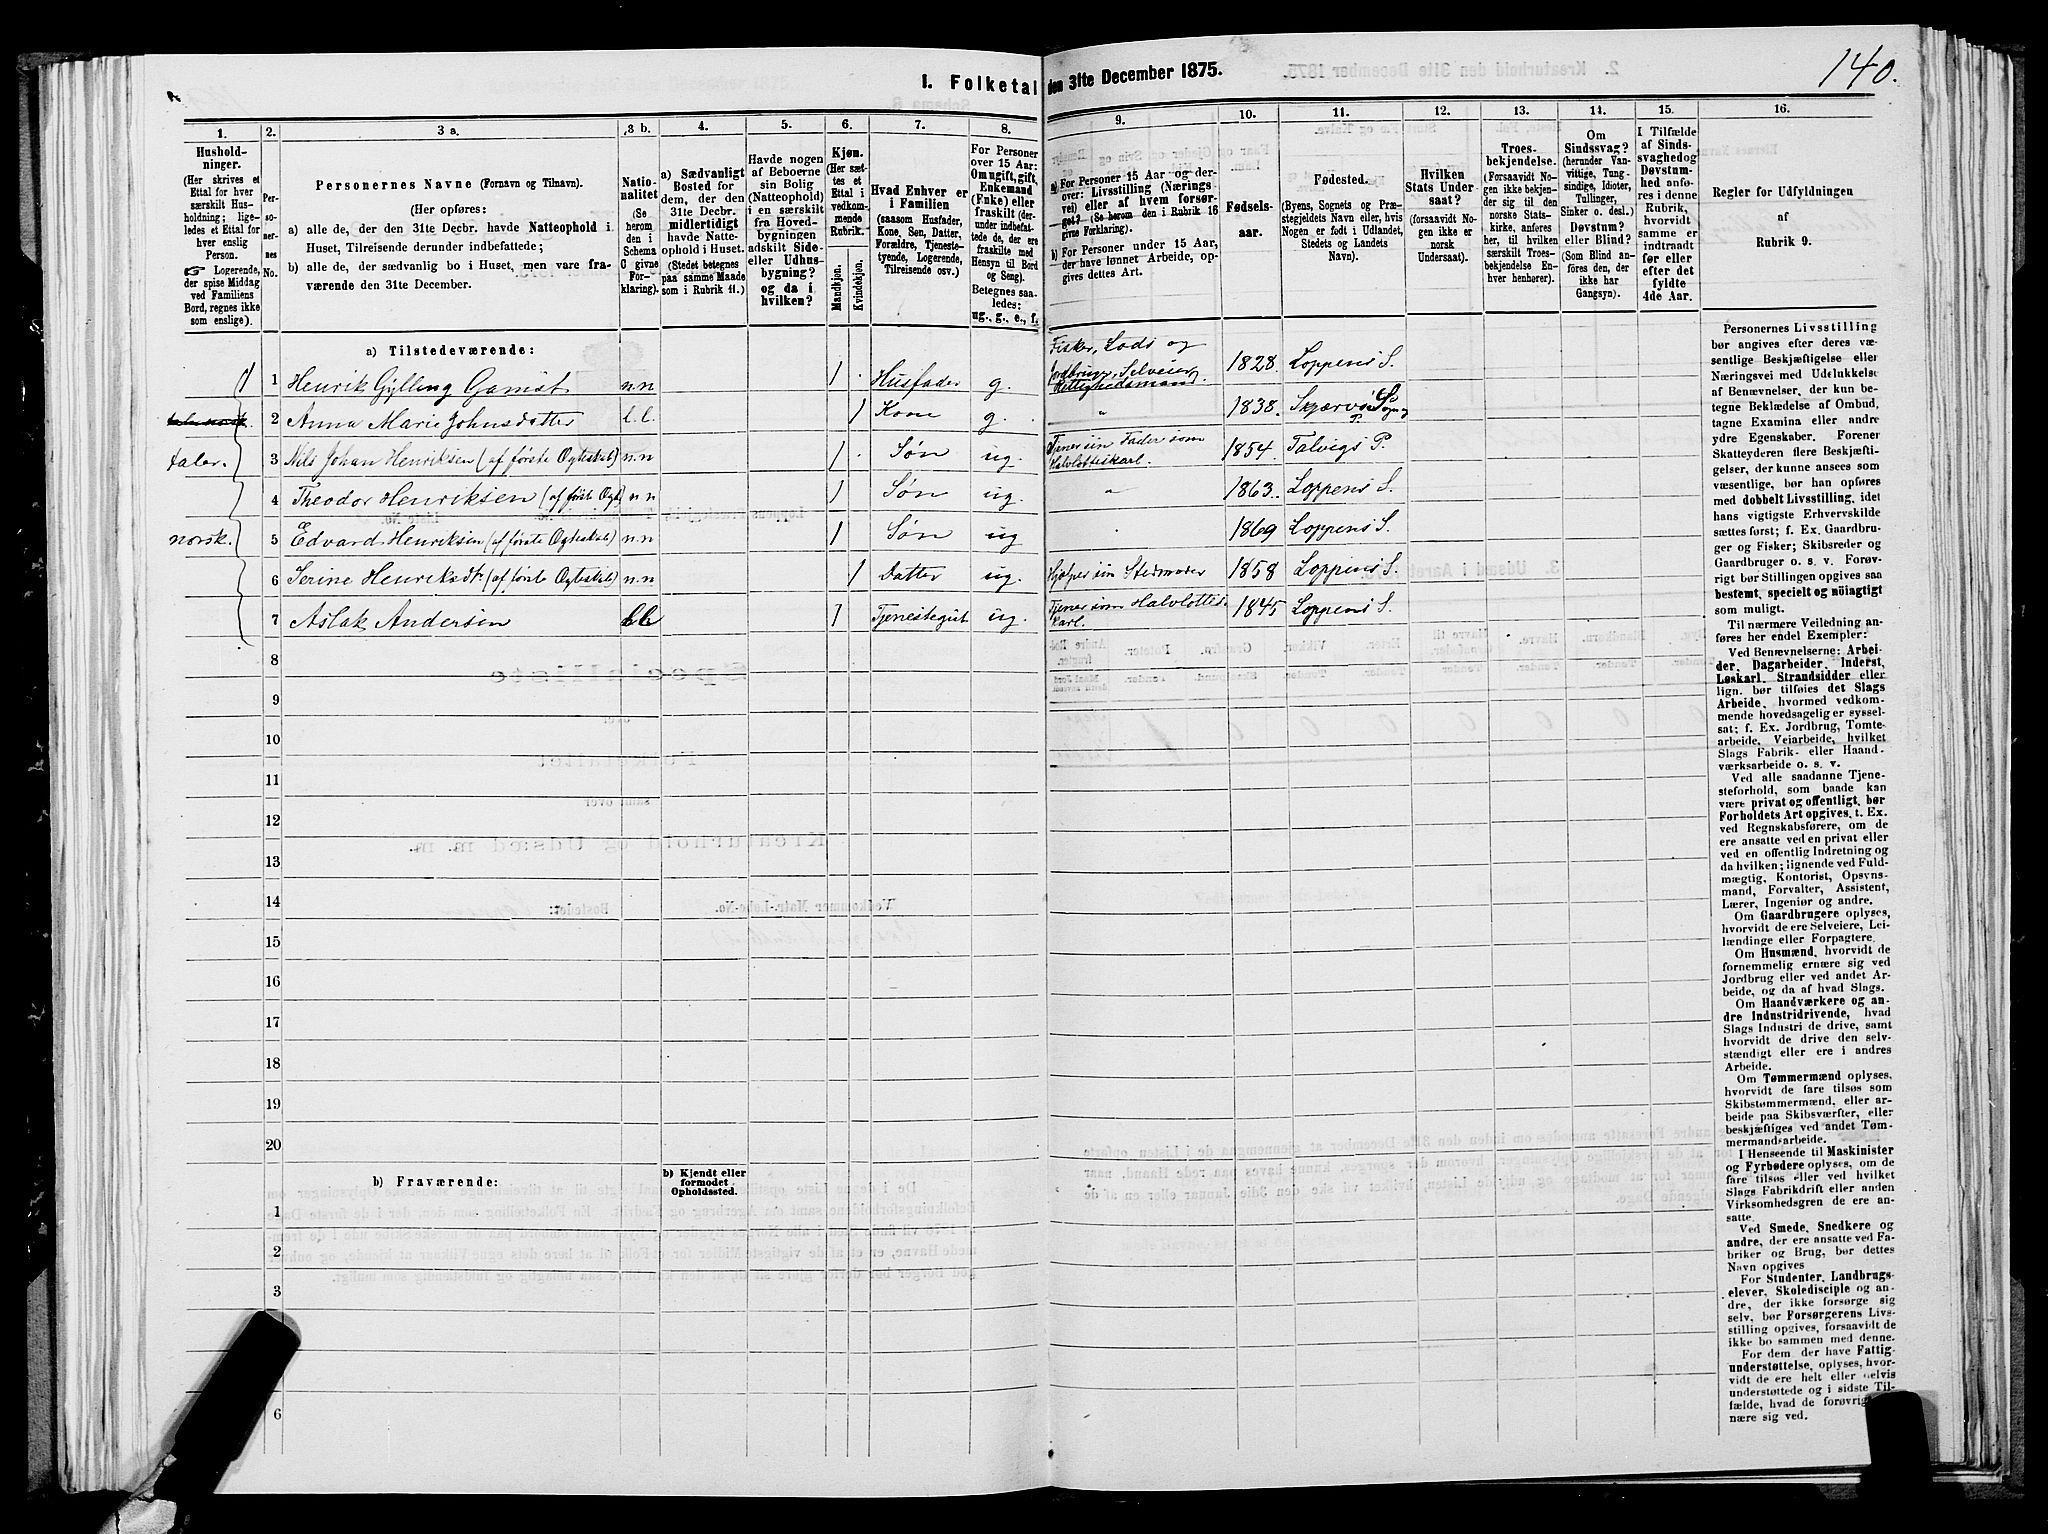 140.
1. Folketal den 31te December 1875.
1.
Hushold-
ninger.
(Her skrives et
Ettal for hver
særskilt Hus-
holdning; lige-
ledes et Ettal for
hver enslig
Person.
☞ Logerende,
der spise Middag
ved Familiens
Bord, regnes ikke
som enslige).
2.
Per-
so-
ner-
nes
No.
3 a.
Personernes Navne (Fornavn og Tilnavn).
(Her opføres:
a) alle de, der den 31te Decbr. havde Natteophold i
Huset, Tilreisende derunder indbefattede;
b) alle de, der sædvanlig bo i Huset, men vare fra-
værende den 31te December.
3 b.
Natio-
nalitet
(Se
herom
den i
Schema
C givne
For-
klaring).
4.
a) Sædvanligt
Bosted for
dem, der den
31te Decbr.
midlertidigt
havde Natte-
ophold i Huset.
(Stedet betegnes
paa samme Maade
som i Rubrik 11.)
5.
Havde nogen
af Beboerne
sin Bolig
(Natteophold)
i en særskilt
fra Hoved-
bygningen
adskilt Side-
eller Udhus-
bygning?
og da i
hvilken?
6.
Kjøn.
(Her sæt-
tes et
Ettal i
vedkom-
mende
Rubrik.
Mandkjøn.
Kvindekjøn.
7.
Hvad Enhver er
i Familien
(saasom Husfader,
Kone, Søn, Datter,
Forældre, Tjeneste-
tyende, Logerende,
Tilreisende osv.)
8.
For Personer
over 15 Aar:
Om ugift, gift,
Enkemand
(Enke) eller
fraskilt (der-
under indbefat-
tede de, der ere
fraskilte med
Hensyn til Bord
og Seng).
Betegnes saa-
ledes:
ug., g., e., f.
9.
a) For Personer 15 Aar og der-
over: Livsstilling (Nærings-
vei) eller af hvem forsør-
get? (Se herom den i Rubrik 16
givne Forklaring).
b) For Personer under 15 Aar,
der have lønnet Arbeide, op-
gives dettes Art.
10.
Fødsels-
aar.
11.
Fødested.
(Byens, Sognets og Præ-
stegjeldets Navn eller, hvis
Nogen er født i Udlandet,
Stedets og Landets
Navn).
12.
Hvilken
Stats Under-
saat?
(forsaavidt No-
gen ikke er
norsk
Undersaat).
13.
Troes-
bekjendelse.
(Forsaavidt No-
gen ikke bekjen-
der sig til den
norske Stats-
kirke, anføres
her, til hvilken
særskilt Troes-
bekjendelse En-
hver henhører).
14.
Om
Sindssvag?
(herunder Van-
vittige, Tung-
sindige, Idioter,
Tullinger,
Sinker o. desl.)
Døvstum?
eller Blind?
(Som Blind an-
føres den, der
ikke har
Gangsyn).
15.
I Tilfælde
af Sinds-
svaghed og
Døvstum-
hed anfø-
res i denne
Rubrik,
hvorvidt
samme er
indtraadt
før eller
efter det
fyldte
4de Aar.
16.
Regler for Udfyldningen
af
Rubrik 9.
a) Tilstedeværende:
1 1 Henrik Gylling Gamst n.n 1 Husfader g. Fisker, Lods og Jordbruger, Selveier, Rettighedsmand. 1828. Loppens S.
2 Anna Marie Johnsdatter l.l. 1 Kone g. " 1838. Skjervø Sogn, P.
taler. 3 Nils Johan Henriksen (af første Ægteskab) n.n 1 Søn ug. Tjener sin Fader som Halvlottskarl. 1854. Talvigs P.
4 Theodor Henriksen (af først Ægt) n.n 1 Søn ug. " 1863. Loppens S.
norsk. 5 Edvard Henriksen (af første Ægteskab) n.n 1 Søn ug 1869 Loppens S.
6 Serine Henriksdt. (af første Ægteskab) n.n 1 Datter ug. Hjælper sin Stedmoder 1858 Loppens S.
7 Aslak Andersen 1 Tjenestegut ug. Tjener som Halvlotts-karl. 1845 Loppens S.
8
9
10
11
12
13
14
15
16
17
18
19
20
b) Fraværende:
b) Kjendt eller
formodet
Opholdssted.
1
2
3
6
Personernes Livsstilling
bør angives efter deres væ-
sentlige Beskjæftigelse eller
Næringsvei med Udelukkelse
af Benævnelser, der kun be-
tegne Beklædelse af Ombud,
tagne Examina eller andre
ydre Egenskaber. Forener
Skatteyderen flere Beskjæfti-
gelser, der kunne ansees som
væsentlige, bør han opføres
med dobbelt Livsstilling, idet
hans vigtigste Erhvervskilde
sættes først; f. Ex. Gaardbru-
ger og Fisker; Skibsreder og
Gaardbruger o. s. v. Forøv-
rigt bør Stillingen opgives saa
bestemt, specielt og nøiagtigt
som muligt.
Til nærmere Veiledning an-
føres her endel Exempler:
Ved Benævnelserne: Arbei-
der, Dagarbeider, Inderst,
Løskarl, Strandsidder eller
lign. bør tilføies det Slags
Arbeide, hvormed vedkom-
mende hovedsagelig er syssel-
sat; f. Ex. Jordbrug, Tomte-
arbeide, Veiarbeide, hvilket
Slags Fabrik- eller Haand-
værksarbeide o. s. v.
Ved alle saadanne Tjene-
steforhold, som baade kan
være privat og offentligt, bør
Forholdets Art opgives, t. Ex.
ved Regnskabsførere, om de
ere ansatte ved en privat eller
ved en offentlig Indretning og
da hvilken; lignende ved Fuld-
mægtig, Kontorist, Opsyns-
mand, Forvalter, Assistent,
Lærer, Ingeniør og andre.
Om Gaardbrugere oplyses,
hvorvidt de ere Selveiere, Lei-
lændinge eller Forpagtere.
Om Husmænd, hvorvidt de
fornemmelig ernære sig ved
Jordbrug eller ved andet Ar-
beide, og da af hvad Slags.
Om Haandværkere og an-
dre Industridrivende, hvad
Slags Industri de drive, samt
hvorvidt de drive den selv-
stændigt eller ere i andres
Arbeide.
Om Tømmermænd oplyses,
hvorvidt de fare tilsøs som
Skibstømmermænd, eller ar-
beide paa Skibsværfter, eller
beskjæftiges ved andet Tøm-
mermandsarbeide.
I Henseende til Maskinister
og Fyrbødere oplyses, om de
fare tilsøs eller ved hvilket
Slags Fabrikdrift eller anden
Virksomhedsgren de ere an-
satte.
Ved Smede, Snedkere og
andre, der ere ansatte ved Fa-
briker og Brug, bør dettes
Navn opgives
For Studenter, Landbrugs-
elever, Skoledisciple og an-
dre, der ikke forsørge sig
selv, bør Forsørgerens Livs-
stilling opgives, forsaavidt de
ikke bo sammen med denne.
For dem, der have Fattig-
understøttelse, oplyses, hvor-
vidt de ere helt eller delvis
understøttede og i sidste Til-
fælde, hvad de forøvrigt
nære sig ved.